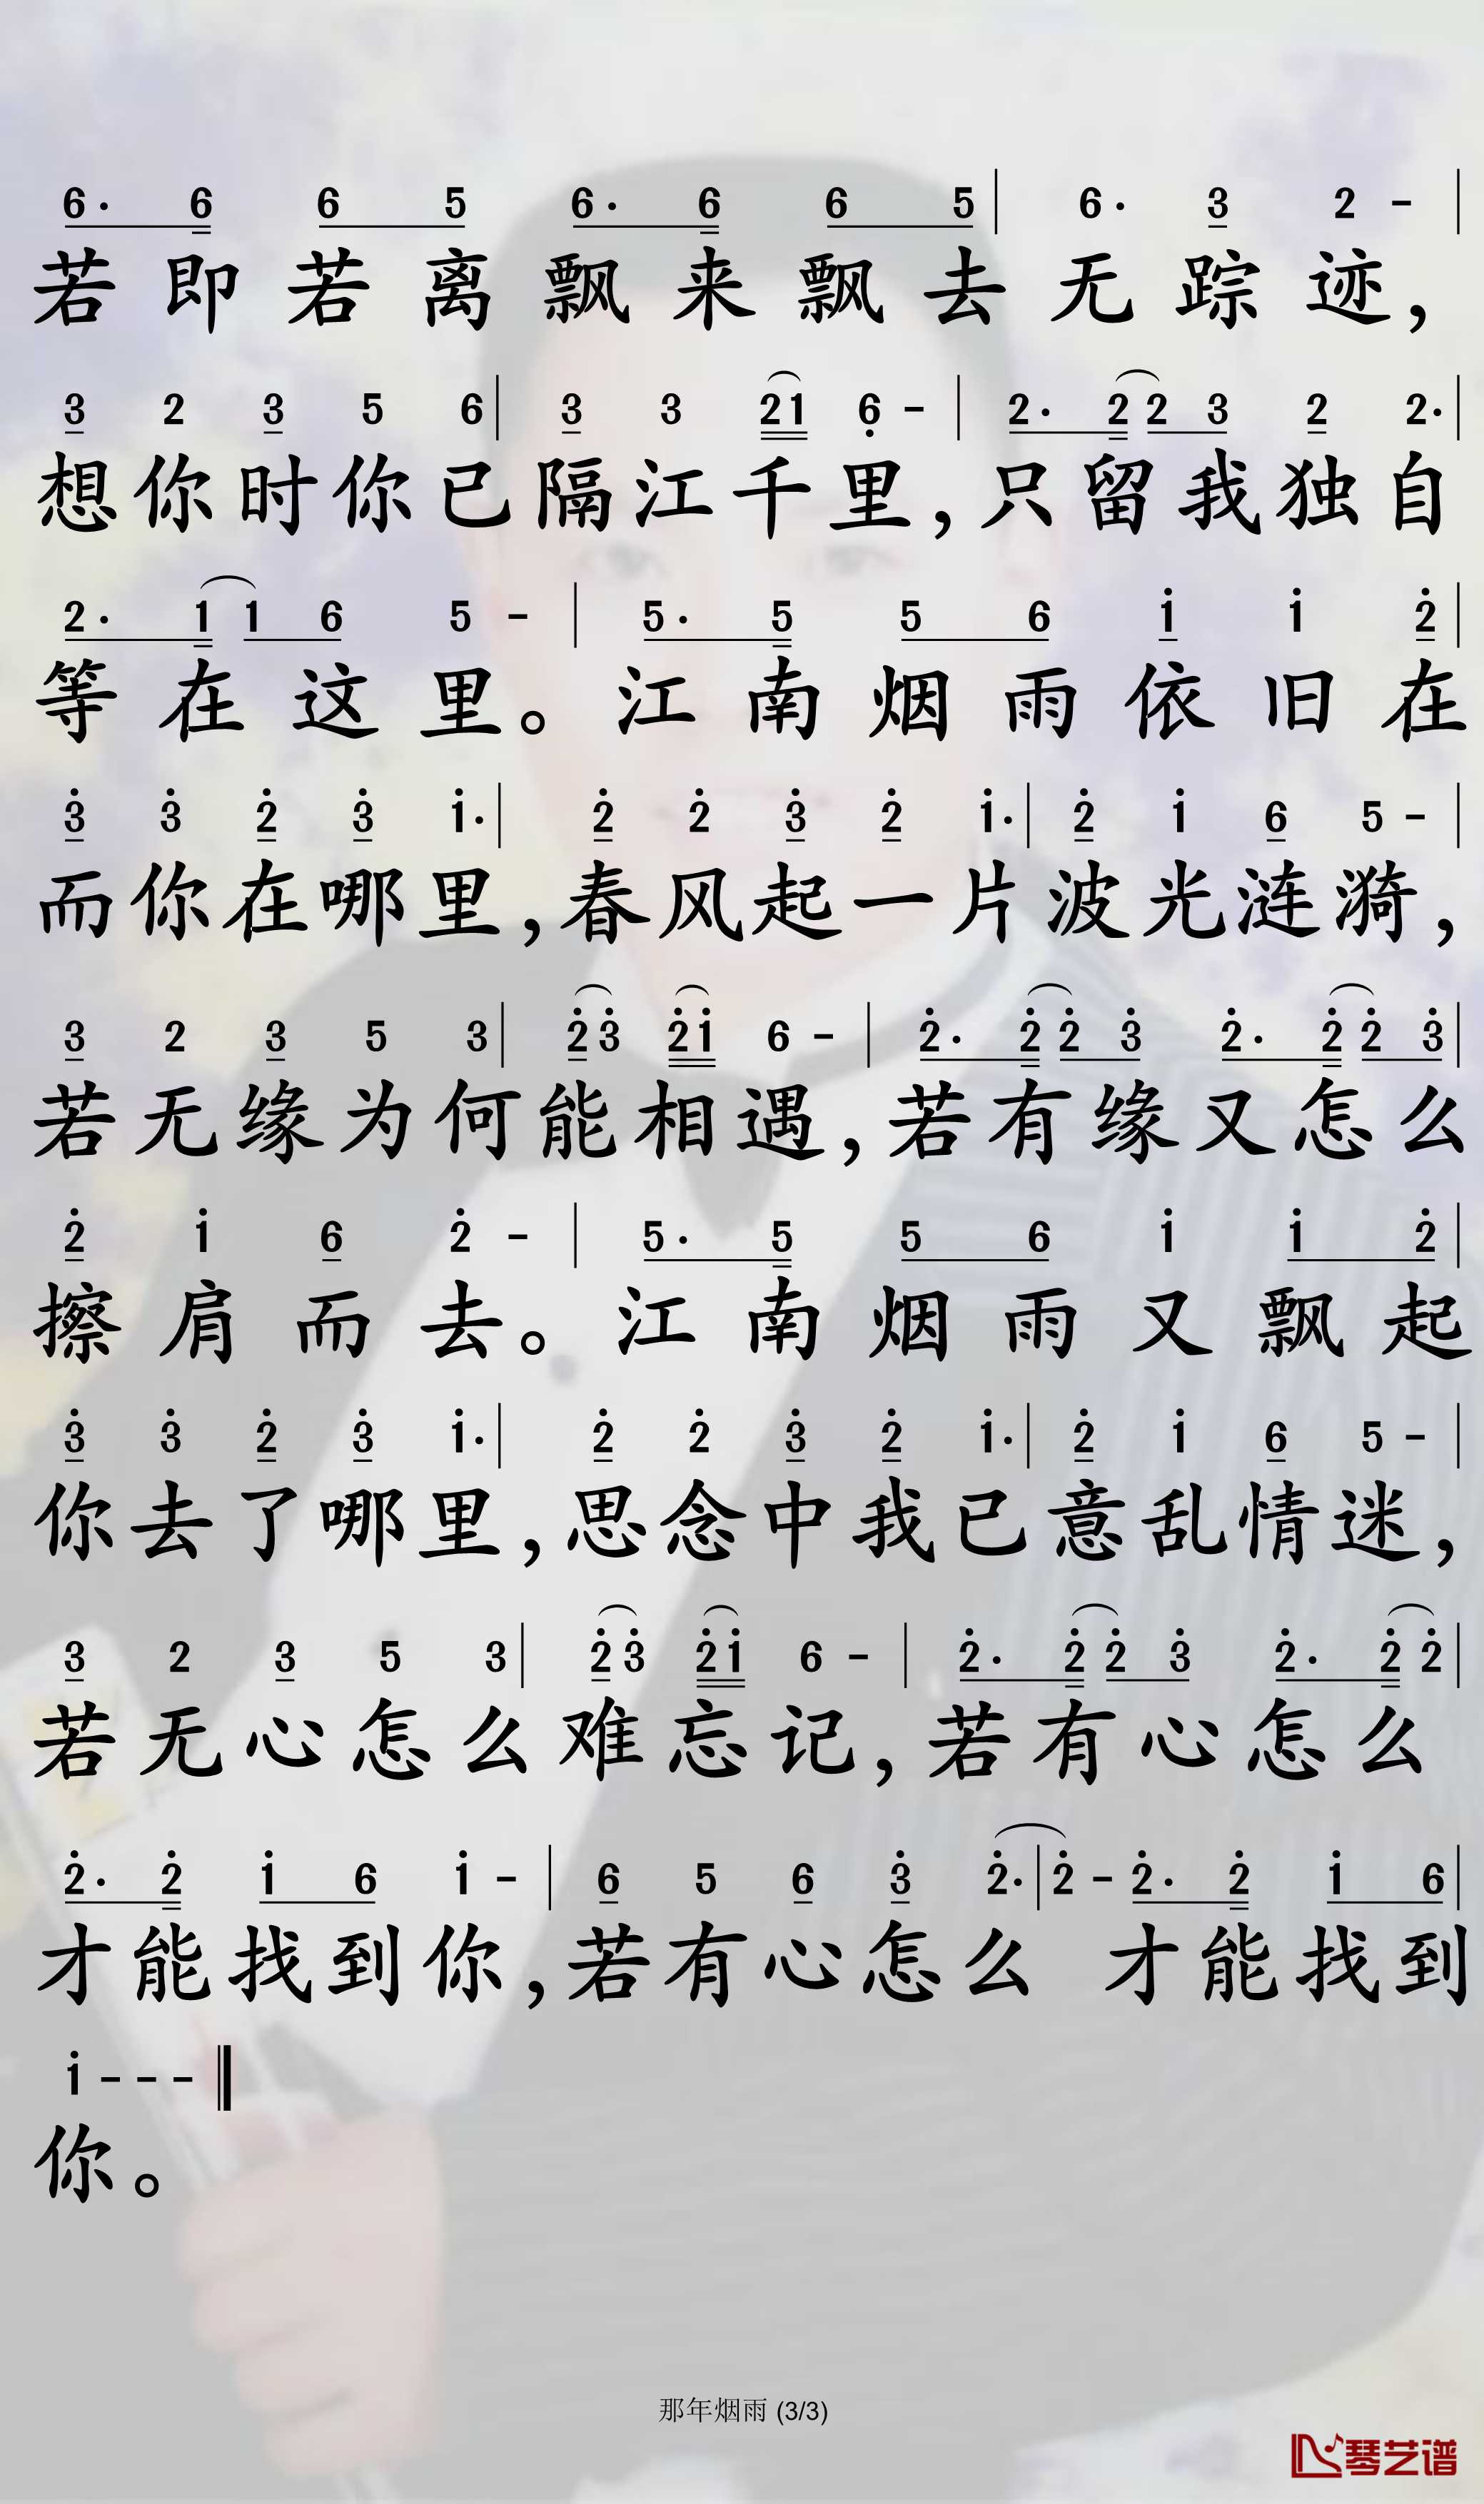 6· 6 6 5 6· 6 6 5 | 6· 3 2 - |
若即若离飘来飘去无踪迹,
3 2 3 5 6 | 3 3 21 6̣ - | 2· 2 2 3 2 2· |
想你时你已隔江千里,只留我独自
2· 1 1 6 5 - | 5· 5 5 6 1̇ 1̇ 2̇ |
等在这里。江南烟雨依旧在
3̇ 3̇ 2̇ 3̇ 1̇· | 2̇ 2̇ 3̇ 2̇ 1̇· | 2̇ 1̇ 6 5 - |
而你在哪里,春风起一片波光涟漪,
3 2 3 5 3 | 2̇3̇ 2̇1̇ 6 - | 2̇· 2̇ 2̇ 3̇ 2̇· 2̇ 2̇ 3̇ |
若无缘为何能相遇,若有缘又怎么
2̇ 1̇ 6 2̇ - | 5· 5 5 6 1̇ 1̇ 2̇ |
擦肩而去。江南烟雨又飘起
3̇ 3̇ 2̇ 3̇ 1̇· | 2̇ 2̇ 3̇ 2̇ 1̇· | 2̇ 1̇ 6 5 - |
你去了哪里,思念中我已意乱情迷,
3 2 3 5 3 | 2̇3̇ 2̇1̇ 6 - | 2̇· 2̇ 2̇ 3̇ 2̇· 2̇ 2̇ |
若无心怎么难忘记,若有心怎么
2̇· 2̇ 1̇ 6 1̇ - | 6 5 6 3̇ 2̇· | 2̇ - 2̇· 2̇ 1̇ 6 |
才能找到你,若有心怎么 才能找到
1̇ - - - ‖
你。
那年烟雨 (3/3)
琴艺谱